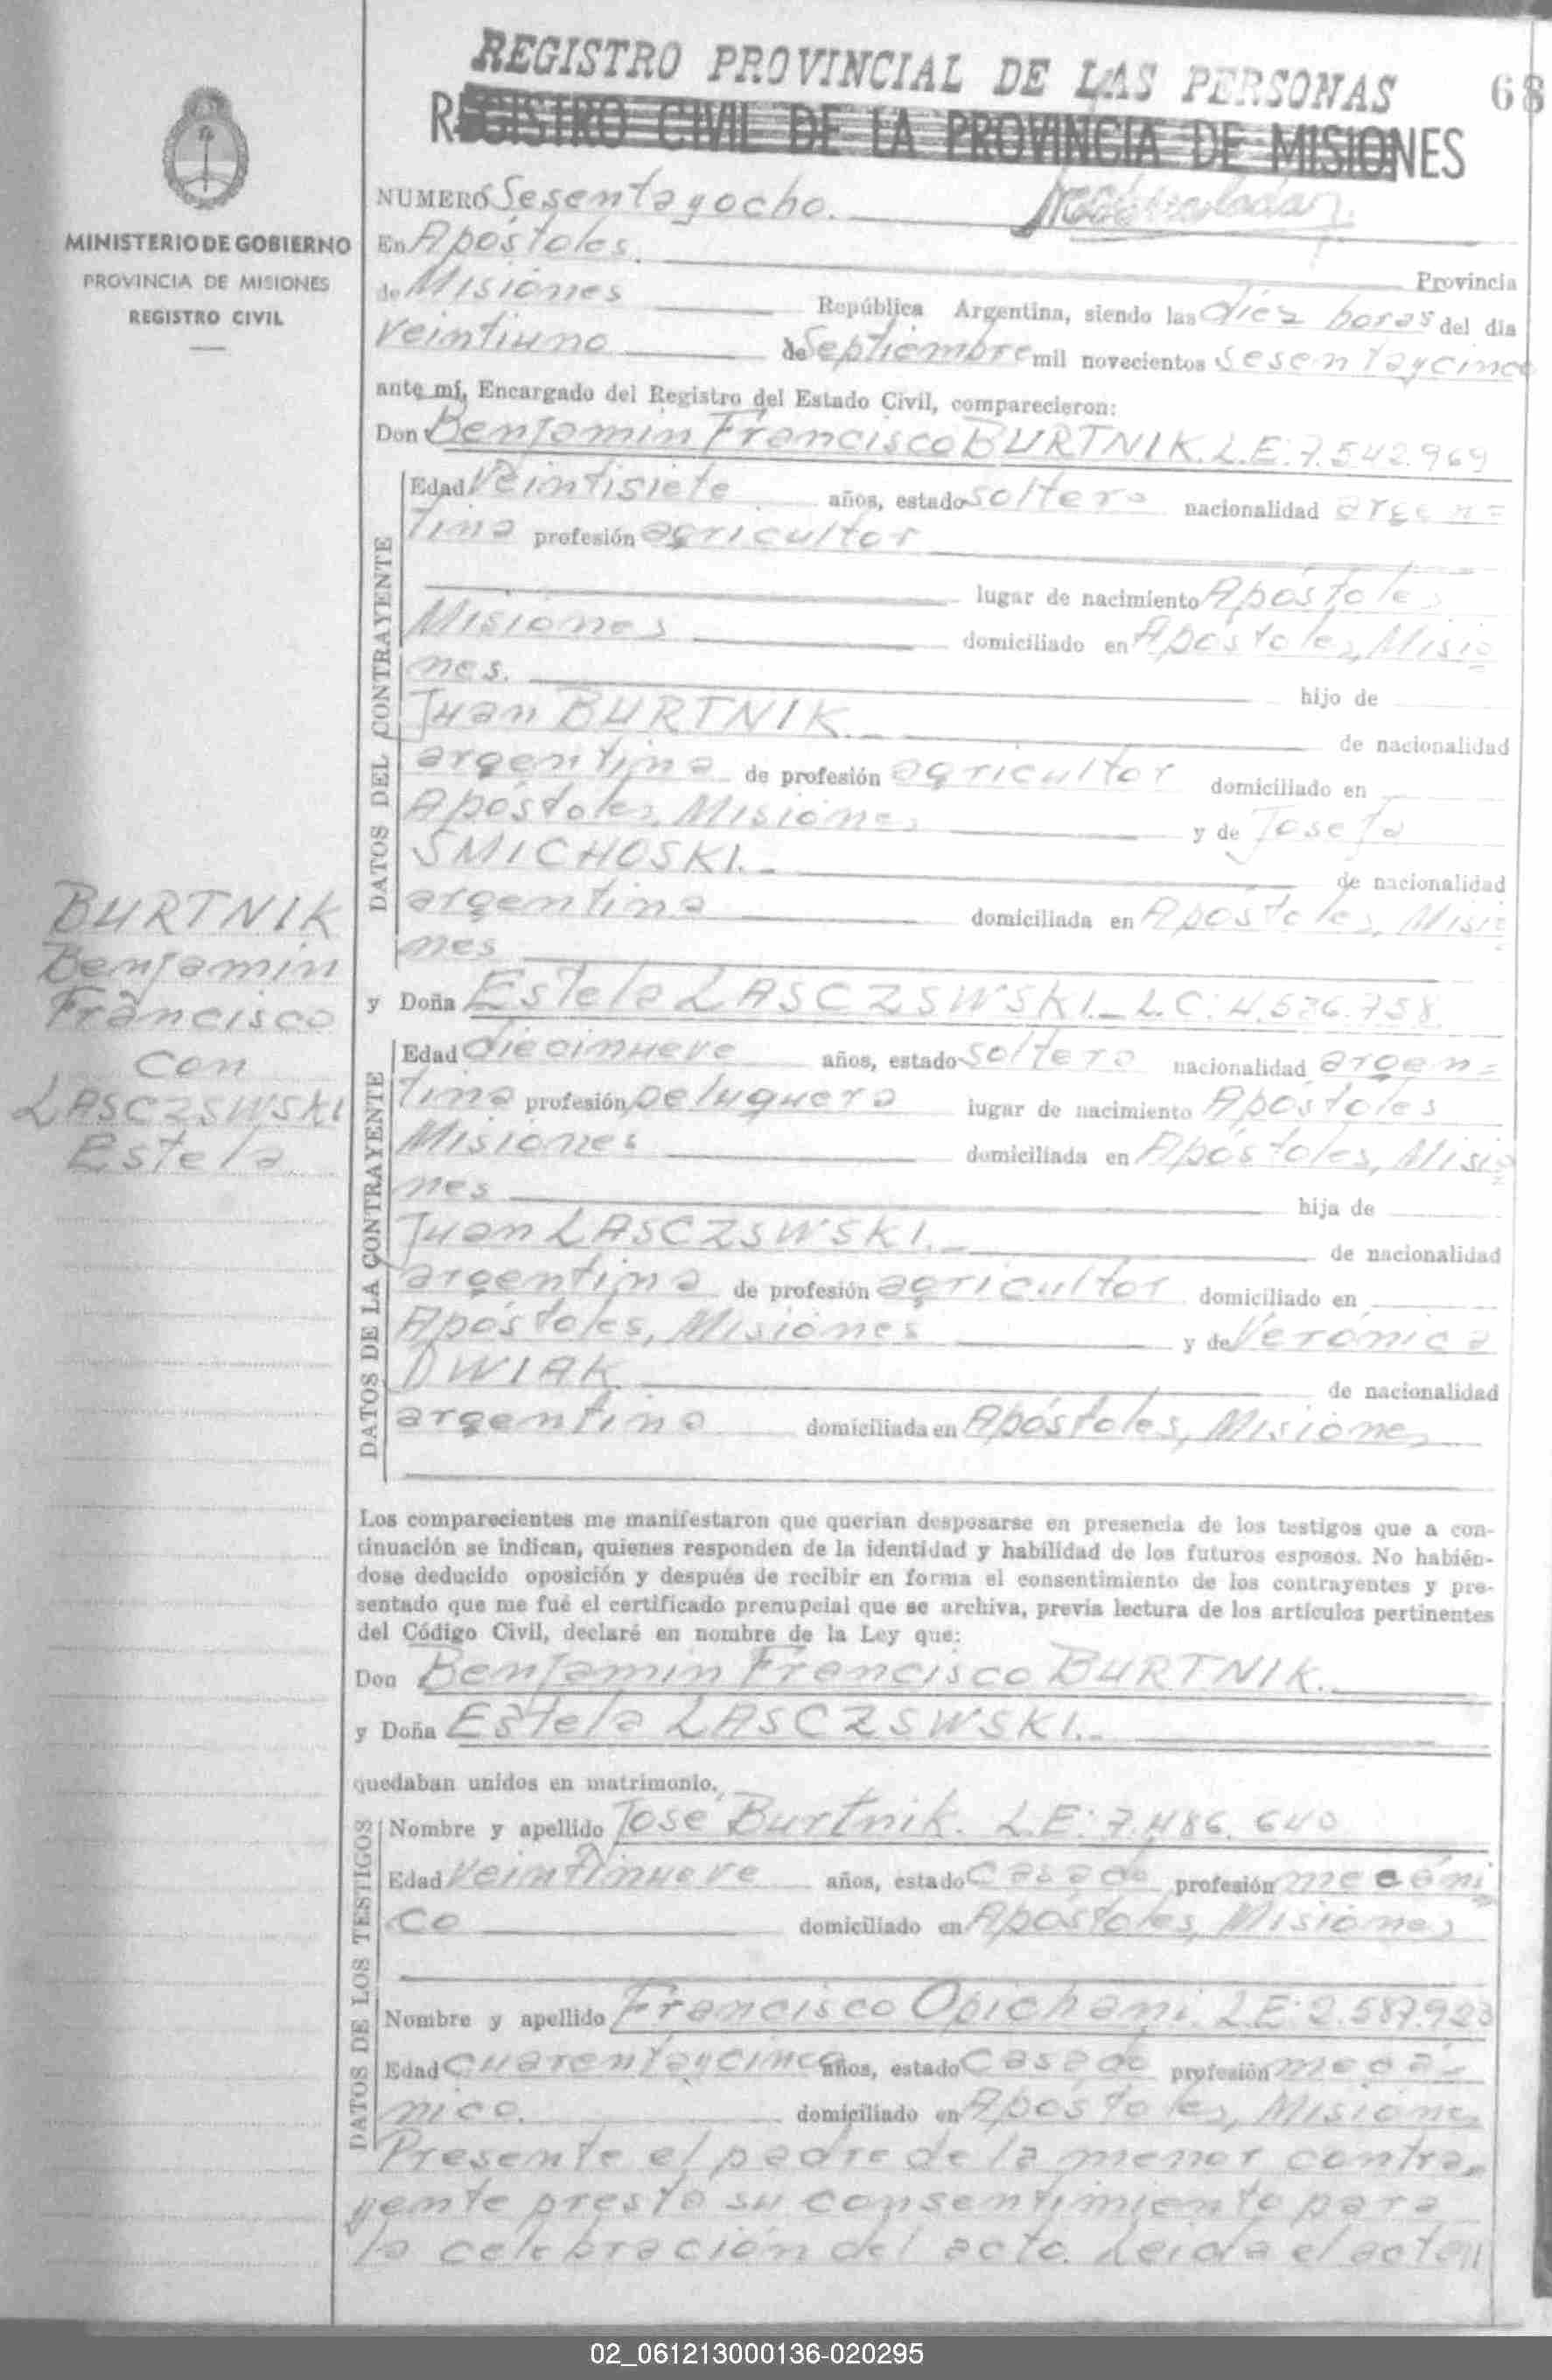 REGISTRO PROVINCIAL DE LAS PERSONAS
68
REGISTRO CIVIL DE LA PROVINCIA DE MISIONES
MINISTERIO DE GOBIERNO
PROVINCIA DE MISIONES
REGISTRO CIVIL
NUMERO Sesentayocho.
En Apóstoles. Provincia
de Misiones República Argentina, siendo las diez horas del dia
veintiuno de Septiembre mil novecientos sesentaycinco
ante mí, Encargado del Registro del Estado Civil, comparecieron:
Don Benjamin Francisco BURTNIK. L.E: 7.542.969
DATOS DEL CONTRAYENTE
Edad veintisiete años, estado soltero nacionalidad argen=
tina profesión agricultor
lugar de nacimiento Apóstoles
Misiones domiciliado en Apóstoles, Misio
nes. hijo de
Juan BURTNIK. de nacionalidad
argentina de profesión agricultor domiciliado en
Apóstoles, Misiones y de Josefa
SMICHOSKI. de nacionalidad
argentina domiciliada en Apostoles, Misio
nes
BURTNIK
Benjamin
Francisco
con
LASCZSWSKI
Estela
y Doña Estela LASCZSWSKI. L.C: 4.526.758
DATOS DE LA CONTRAYENTE
Edad diecinueve años, estado soltera nacionalidad argen=
tina profesión peluquera lugar de nacimiento Apóstoles
Misiones domiciliada en Apóstoles, Misio
nes hija de
Juan LASCZSWSKI. de nacionalidad
argentina de profesión agricultor domiciliado en
Apóstoles, Misiones y de Verónica
DWIAK de nacionalidad
argentina domiciliada en Apóstoles, Misiones
Los comparecientes me manifestaron que querian desposarse en presencia de los testigos que a con-
tinuación se indican, quienes responden de la identidad y habilidad de los futuros esposos. No habién-
dose deducido oposición y después de recibir en forma el consentimiento de los contrayentes y pre-
sentado que me fué el certificado prenupcial que se archiva, previa lectura de los artículos pertinentes
del Código Civil, declaré en nombre de la Ley que:
Don Benjamin Francisco BURTNIK.
y Doña Estela LASCZSWSKI.
quedaban unidos en matrimonio.
DATOS DE LOS TESTIGOS
Nombre y apellido José Burtnik. L.E: 7.486.640
Edad veintinueve años, estado casado profesión mecáni
co domiciliado en Apóstoles, Misiones
Nombre y apellido Francisco Opichani. L.E: 2.587.923
Edad cuarentaycinco años, estado casado profesión mecá=
nico. domiciliado en Apóstoles, Misiones
Presente el padre de la menor contra=
yente presta su consentimiento para
la celebración del acto. Leida el acta
02_061213000136-020295